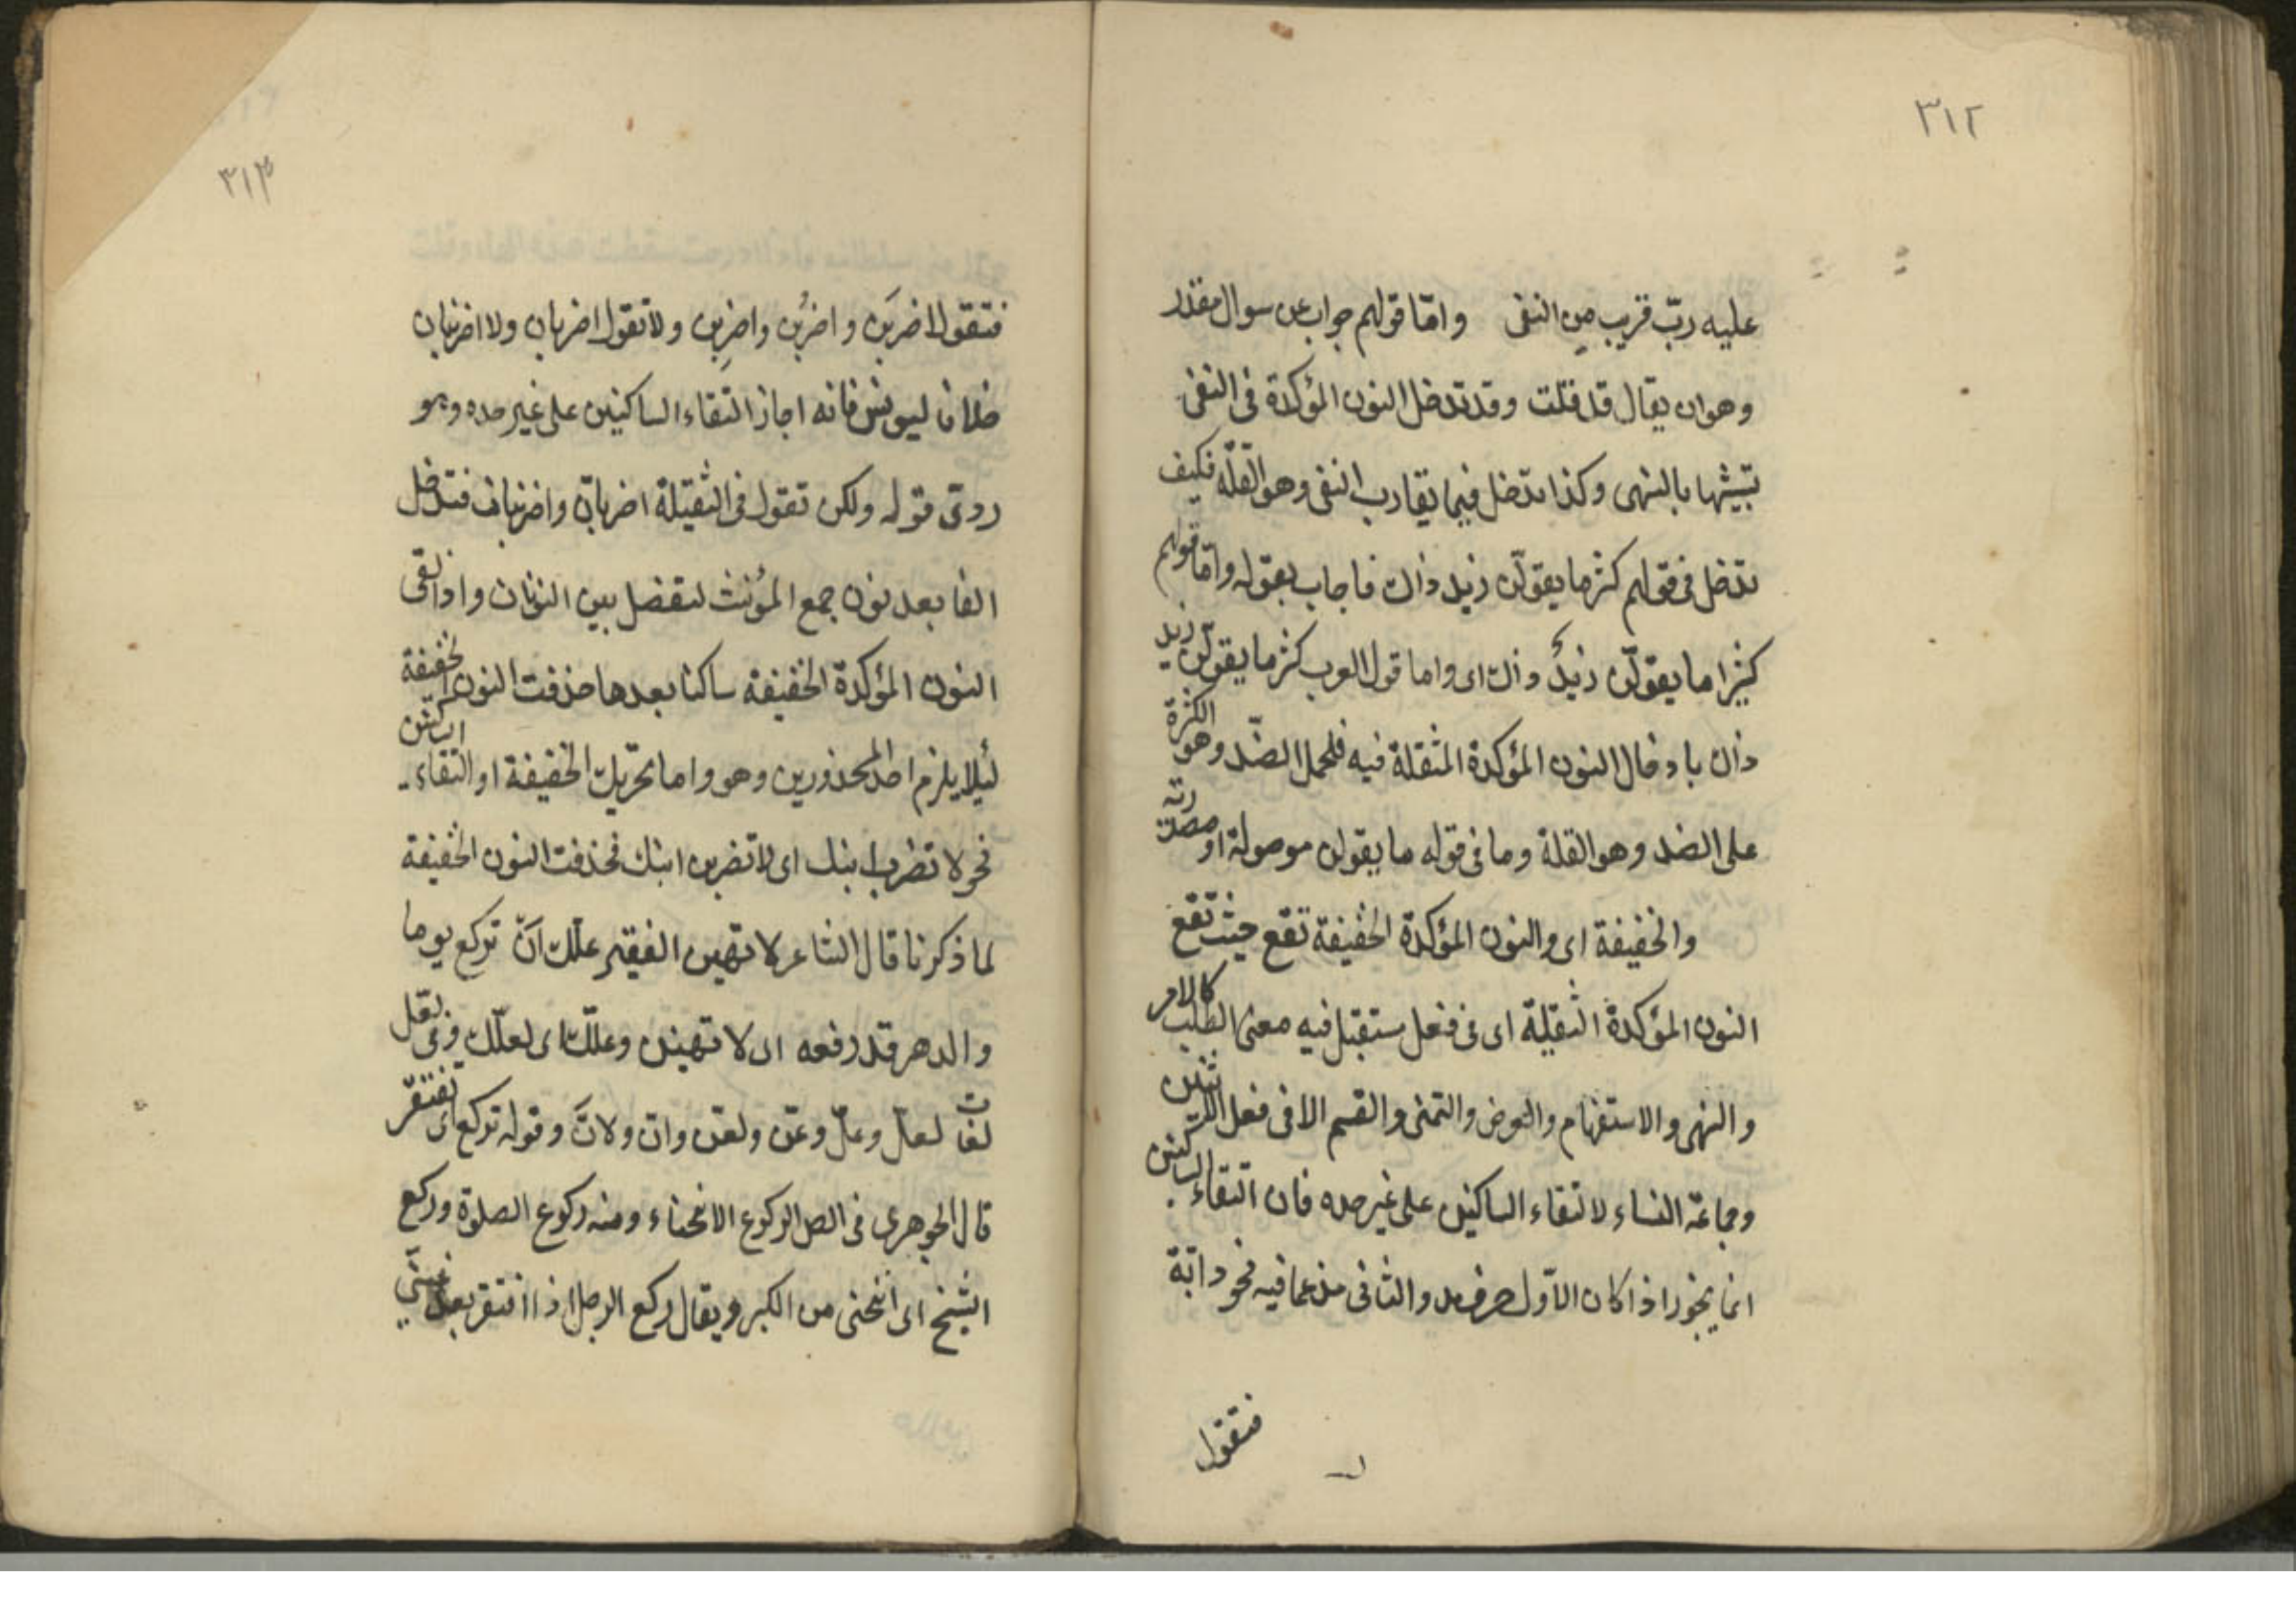 ٣١٢
عليه ربّ قريب من النفى وامّا قولهم جواب عن سوال مقدر
وهو ان يقال قد قلت وقد تدخل النون المؤكدة فى النفى
تشبيها بالنهى وكذا تدخل فيما يقارب النفى وهو القلّة فكيف
تدخل فى قولهم كثر ما يقولّن زيد ذاك فاجاب بقوله وامّا قولهم
كثيرا ما يقولّن زيدٌ ذاك اى واما قول العرب كثر ما يقولّن زيد
ذاك بادخال النون المؤكدة المثقلة فيه فلحمل الضّد وهو الكثرة
على الضد وهو القلة وما فى قوله ما يقولن موصولة او مصدريّة
والخفيفة اى والنون المؤكدة الخفيفة تقع حيث تقع
النون المؤكدة الثقيلة اى فى فعل مستقبل فيه معنى الطلب كالامر
والنهى والاستفهام والعرض والتمنى والقسم الا فى فعل الاثنين
وجماعة النساء لالتقاء الساكنين على غير حده فان التقاء الساكنين
انما يجوز اذا كان الاوّل حرف مد والثانى مدغما فيه نحو دابّة
فتقول
٣١٣
فتقول اضربَن و اضربُن واضربِن ولا تقول اضربان ولا اضربنان
خلافا ليونس فانه اجاز التقاء الساكنين على غير حده وهو
ردىّ قوله ولكن تقول فى الثقيلة اضربانّ واضربنانّ فتدخل
الفا بعد نون جمع المؤنث لتفصل بين النونان واذا لقى
النون المؤكدة الخفيفة ساكنا بعدها حذفت النون الخفيفة
لئلا يلزم احد المحذورين وهو واما تحريك الخفيفة او التقاء الساكنين
نحو لا تضرب ابنك اى لا تضربن ابنك فحذفت النون الخفيفة
لما ذكرنا قال الشاعر لا تهين الفقير علّك ان تركع يوما
والدهر قد رفعه اى لا تهينن وعلّك اى لعلّك وفى لعّل
لغات لعلّ وعلّ وعنّ ولعنّ وانّ ولانّ وقوله تركع اى تفتقر
قال الجوهرى فى الصل الركوع الانحناء ومنه ركوع الصلوة وركع
الشيخ اى انحنى من الكبر ويقال ركع الرجل اذا افتقر بعد غنىّ